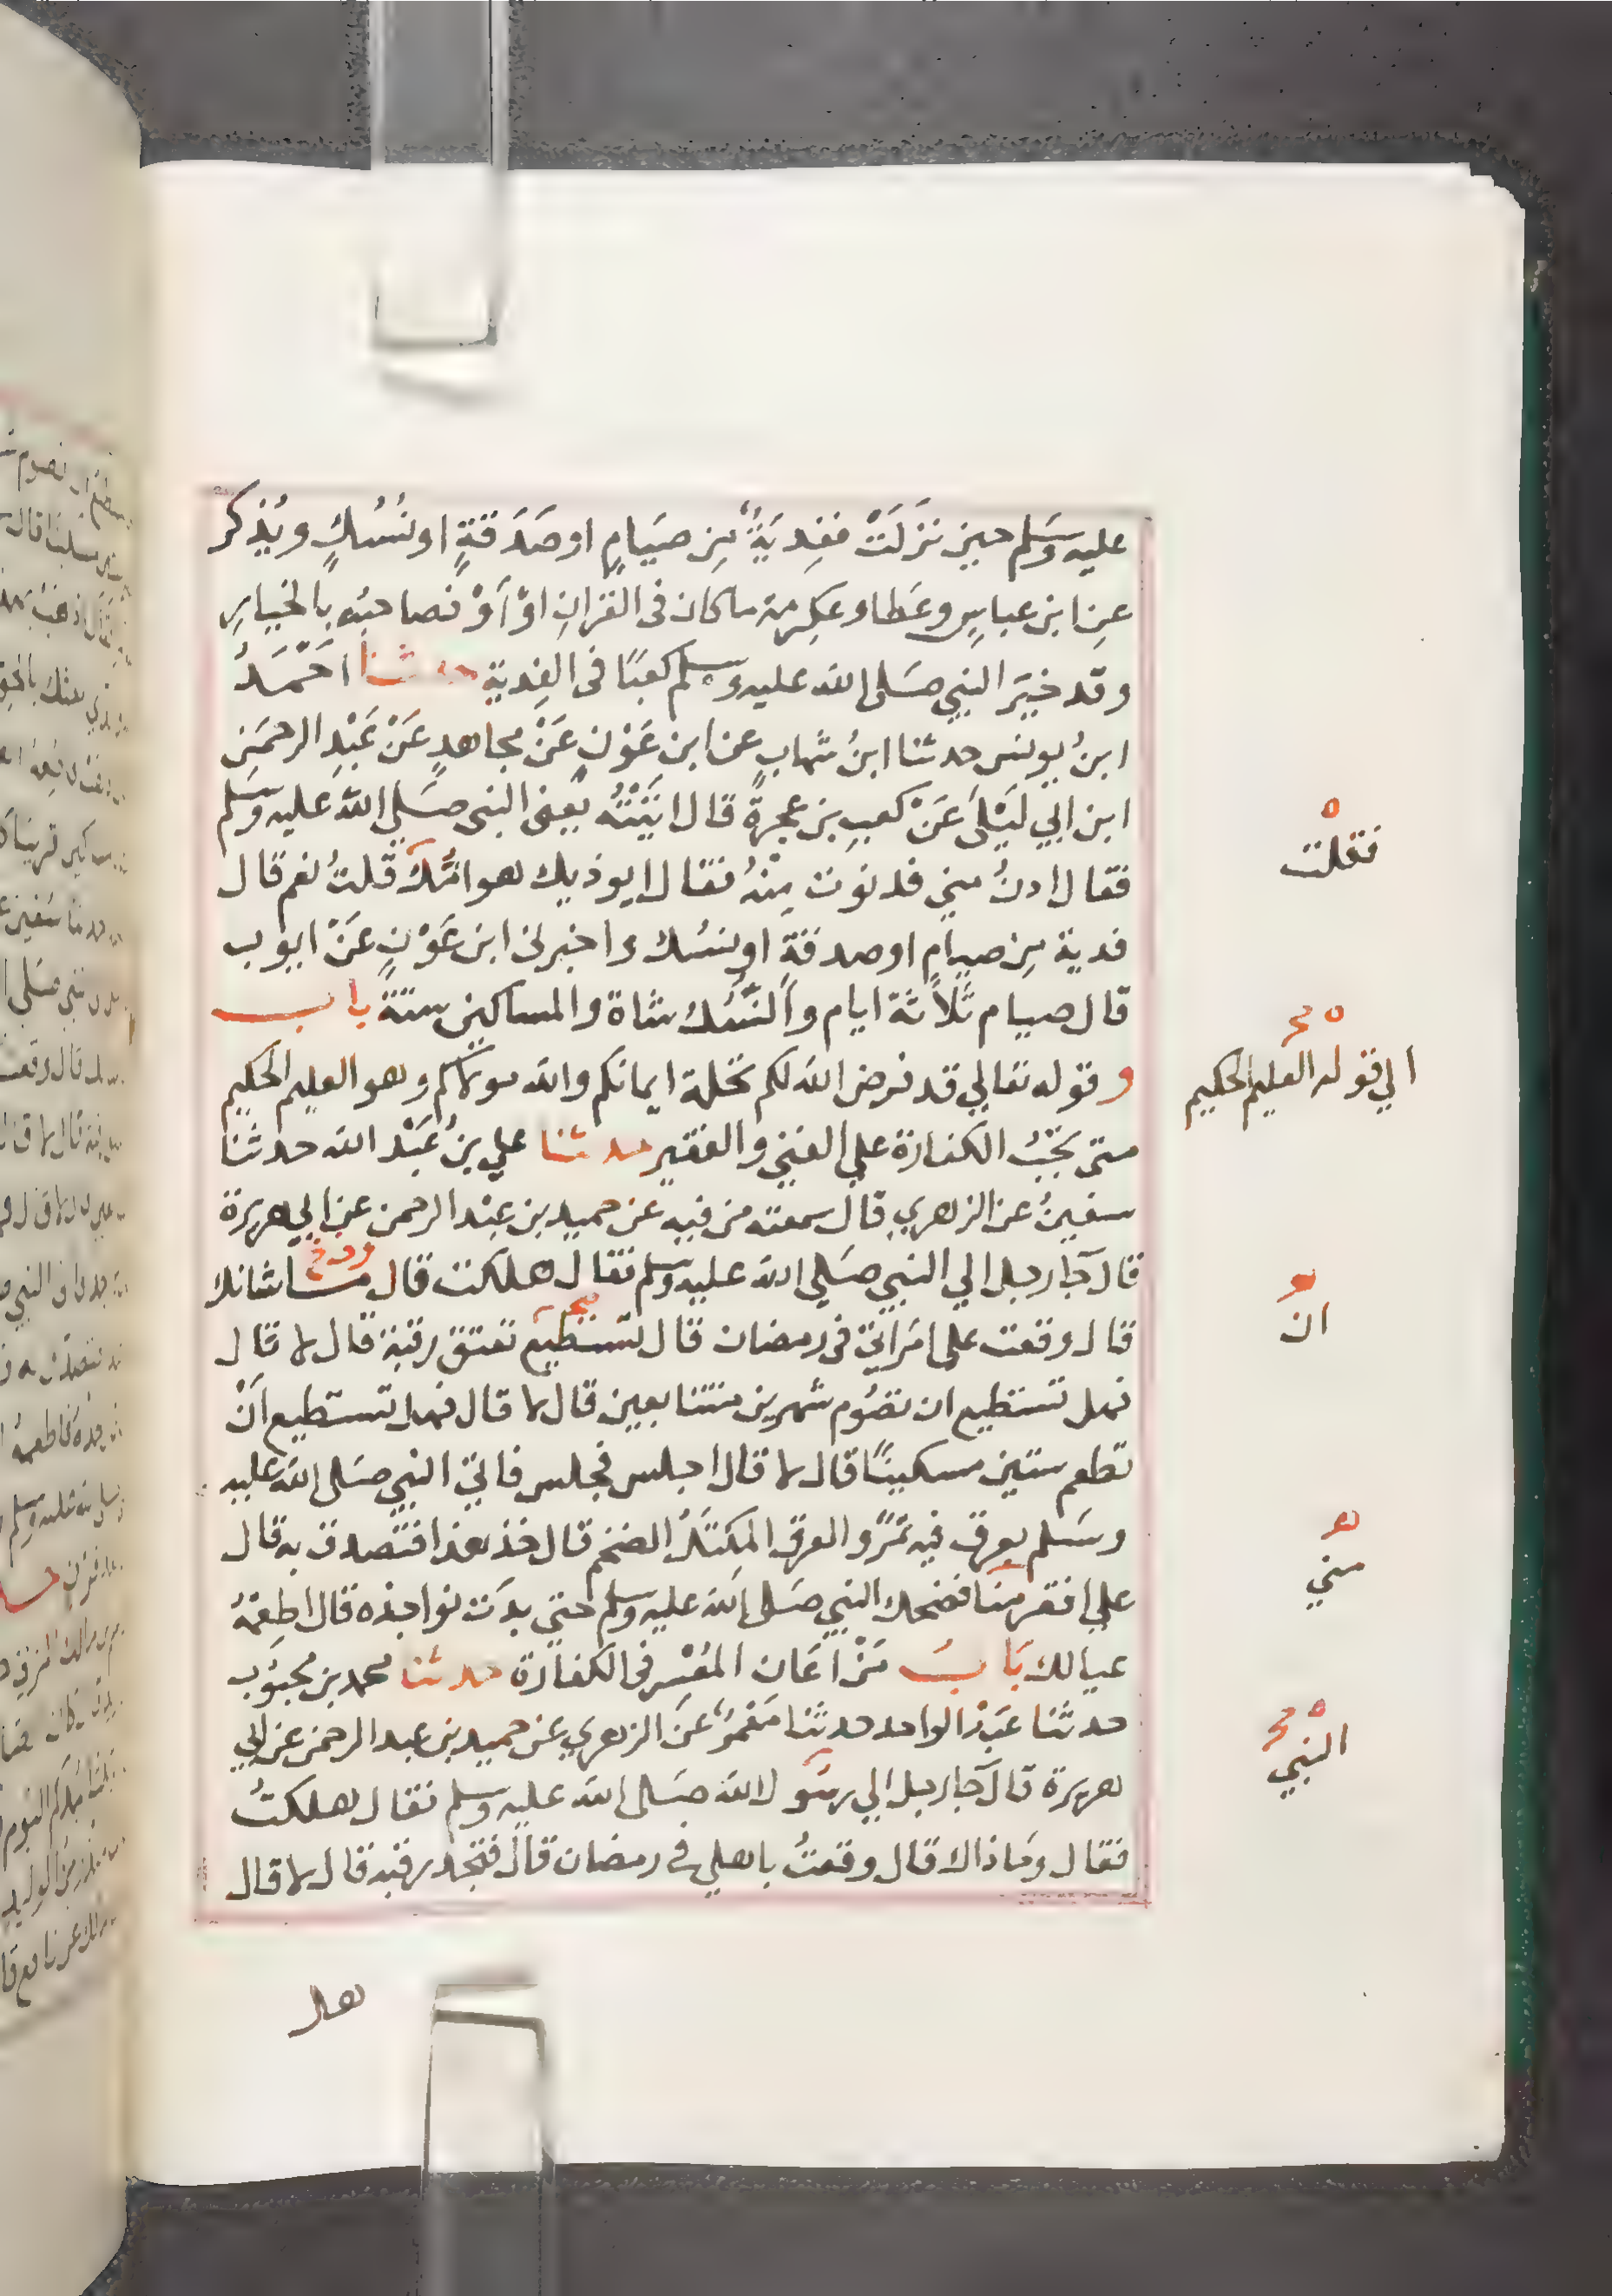 عليه وسلم حين نزلت ففدية من صيام او صدقة او نسك ويذكر
عن ابن عباس وعطا وعكرمة ما كان فى القران او او فصاحبه بالخيار
وقد خير النبي صلى الله عليه وسلم كعبًا فى الفدية حدثنا احمد
ابن يونس حدثنا ابن شهاب عن ابن عون عن مجاهد عن عبد الرحمن
ابن ابي ليلى عن كعب بن عجرة قال اتيته يعنى النبى صلي الله عليه وسلم
فقال ادن مني فدنوت منه فقال ايوذيك هوامك قلت نعم قال
فدية من صيام او صدقة او نسك واخبرنى ابن عون عن ايوب
قال صيام ثلاثة ايام والنسك شاة والمساكين ستة باب
وقوله تعالي قد فرض الله لكم تحلة ايمانكم والله مولاكم وهو العليم الحكيم
متى تجب الكفارة علي الغني والفقير حدثنا علي بن عبد الله حدثنا
سفين عن الزهري قال سمعته من فيه عن حميد بن عبد الرحمن عن ابي هريرة
قال جا رجل الي النبي صلي الله عليه وسلم فقال هلكت قال ما شانك
قال وقعت على امراتي فى رمضان قال تستطيع تعتق رقبة قال لا قال
فهل تستطيع ان تصوم شهرين متتابعين قال لا قال فهل تستطيع ان
تطعم ستين مسكينًا قال لا قال اجلس فجلس فاتي النبي صلى الله عليه
وسلم بعرق فيه تمر والعرق المكتل الضخم قال خذ هذا فتصدق به قال
علي افقر منا فضحك النبي صلى الله عليه وسلم حتي بدت نواجذه قال اطعمه
عيالك باب من اعان المعسر فى الكفارة حدثنا محمد بن محبوب
حدثنا عبد الواحد حدثنا معمر عن الزهري عن حميد بن عبد الرحمن عن ابي
هريرة قال جا رجل الي رسول الله صلى الله عليه وسلم فقال هلكت
فقال وما ذاك قال وقعت باهلي في رمضان قال فتجد رقبة قال لا قال
هل
فقلت
الي قوله العليم الحكيم
ان
مني
النبي